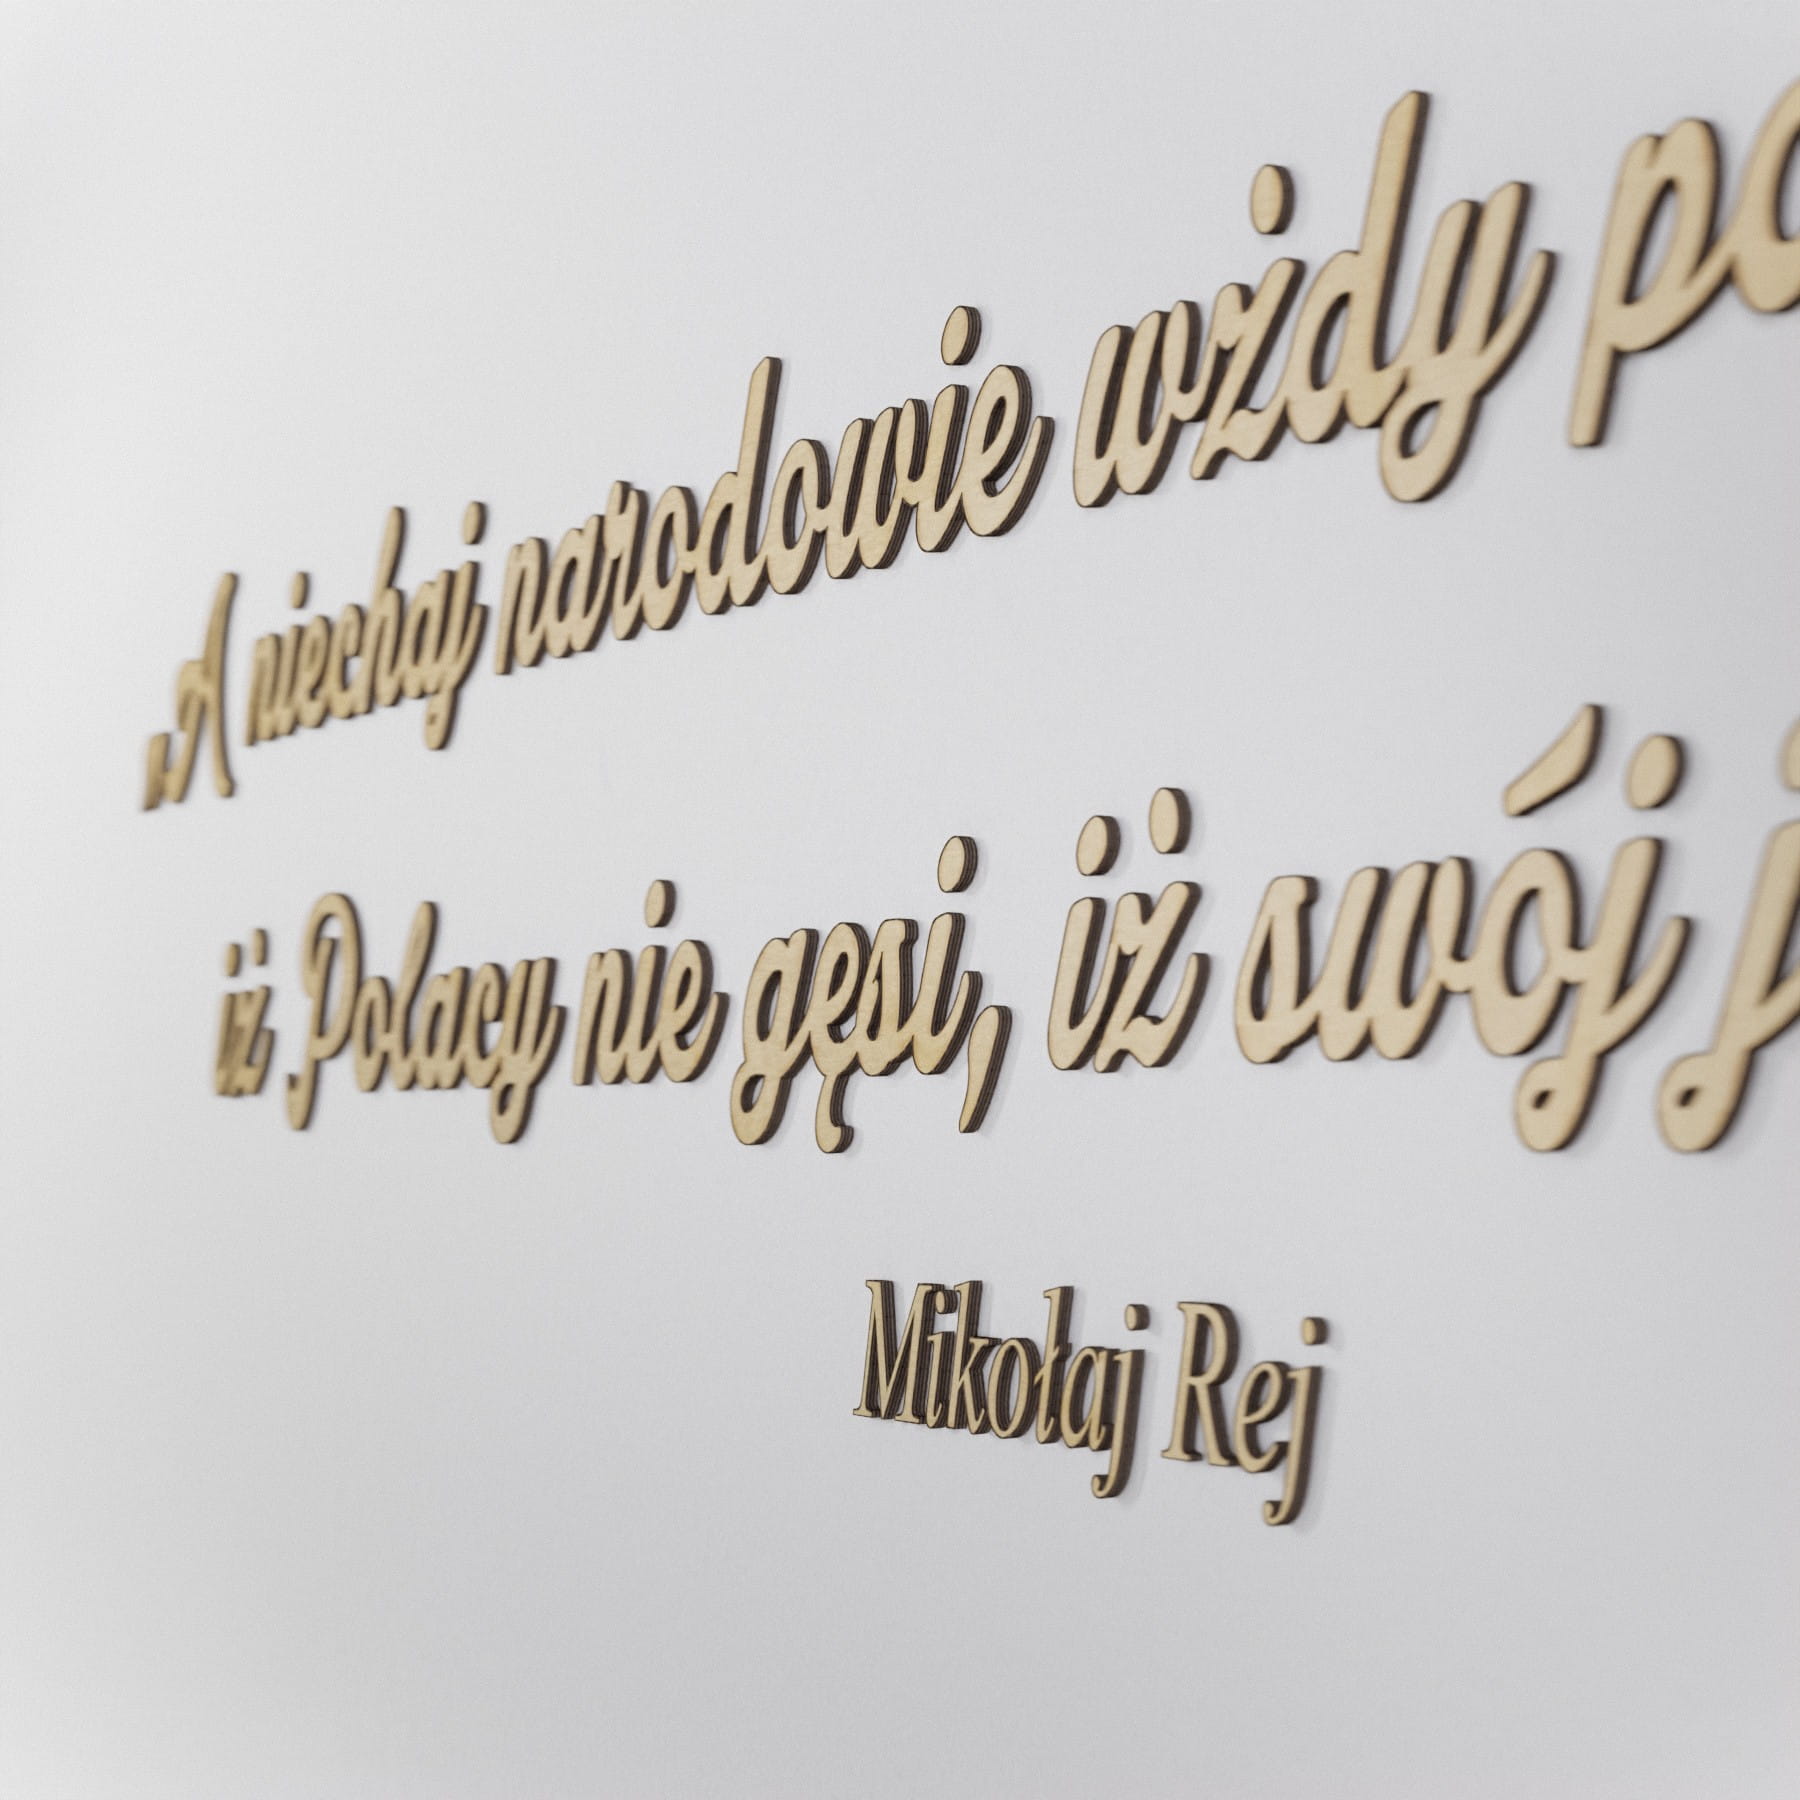 „A niechaj narodowie wżdy po
iż Polacy nie gęsi, iż swój j
Mikołaj Rej